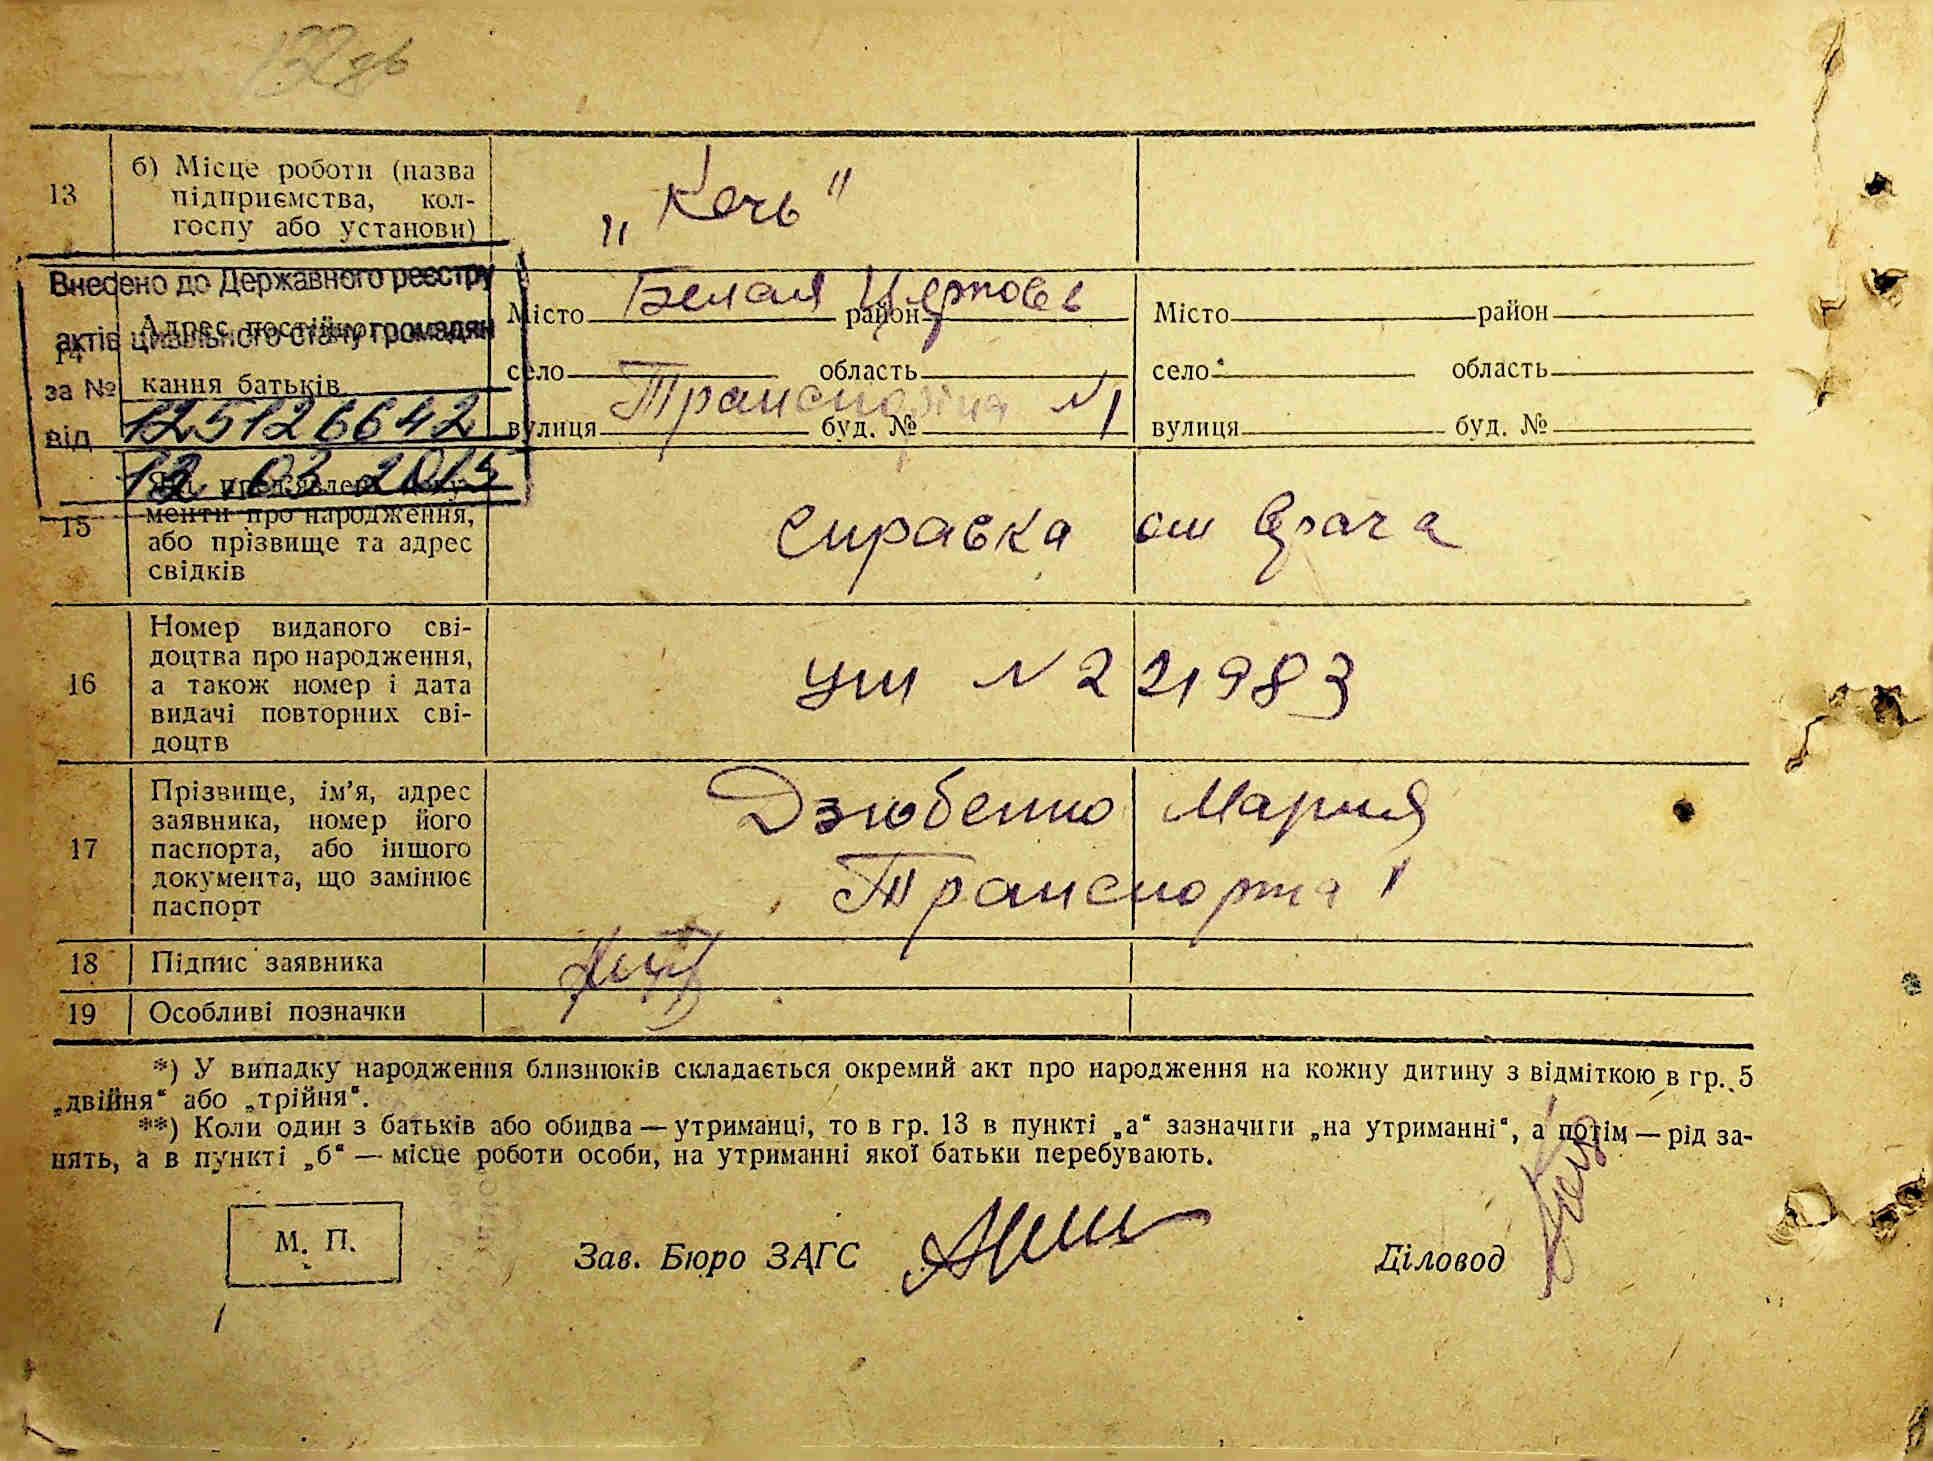 13
б) Місце роботи (назва
підприємства, кол-
госпу або установи)
„Кечь"
Внесено до Державного реєстру
актів цивільного стану громадян
за №
125126642
від
12.03 2015
14
Адрес постійного
кання батьків
Місто Белая Церковь район
село область
вулиця Транспортна буд. № N1
Місто район
село область
вулиця буд. №
15
менти про народження,
або прізвище та адрес
свідків
справка от врача
16
Номер виданого сві-
доцтва про народження,
а також номер і дата
видачі повторних сві-
доцтв
УШ N 221983
17
Прізвище, ім'я, адрес
заявника, номер його
паспорта, або іншого
документа, що замінює
паспорт
Дзюбенко Мария
Транспортна 1
18
Підпис заявника
19
Особливі позначки
*) У випадку народження близнюків складається окремий акт про народження на кожну дитину з відміткою в гр. 5
„двійня“ або „трійня“.
**) Коли один з батьків або обидва — утриманці, то в гр. 13 в пункті „а“ зазначити „на утриманні“, а потім — рід за-
нять, а в пункті „б“ — місце роботи особи, на утриманні якої батьки перебувають.
М. П.
Зав. Бюро ЗАГС
Діловод